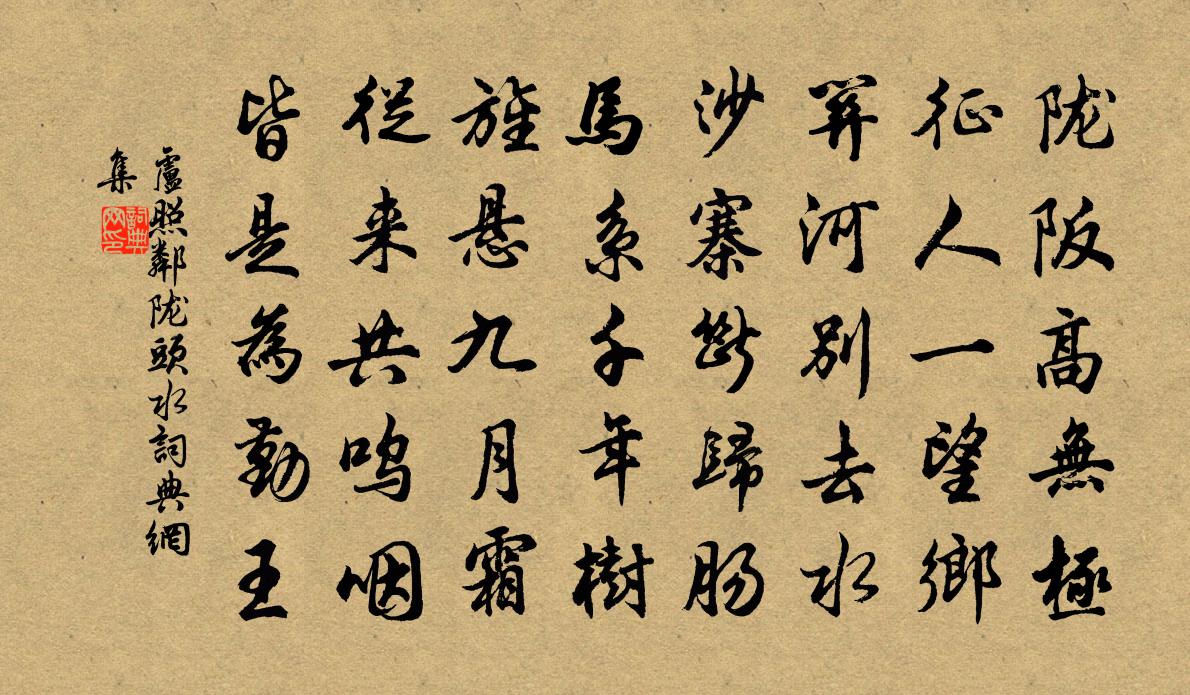 陇阪高無極
征人一望鄉
關河別去水
沙寨斷歸肠
馬系千年樹
旌悬九月霜
從来共呜咽
皆是為勤王
盧照鄰陇頭水詞典網
集
詞典
网印